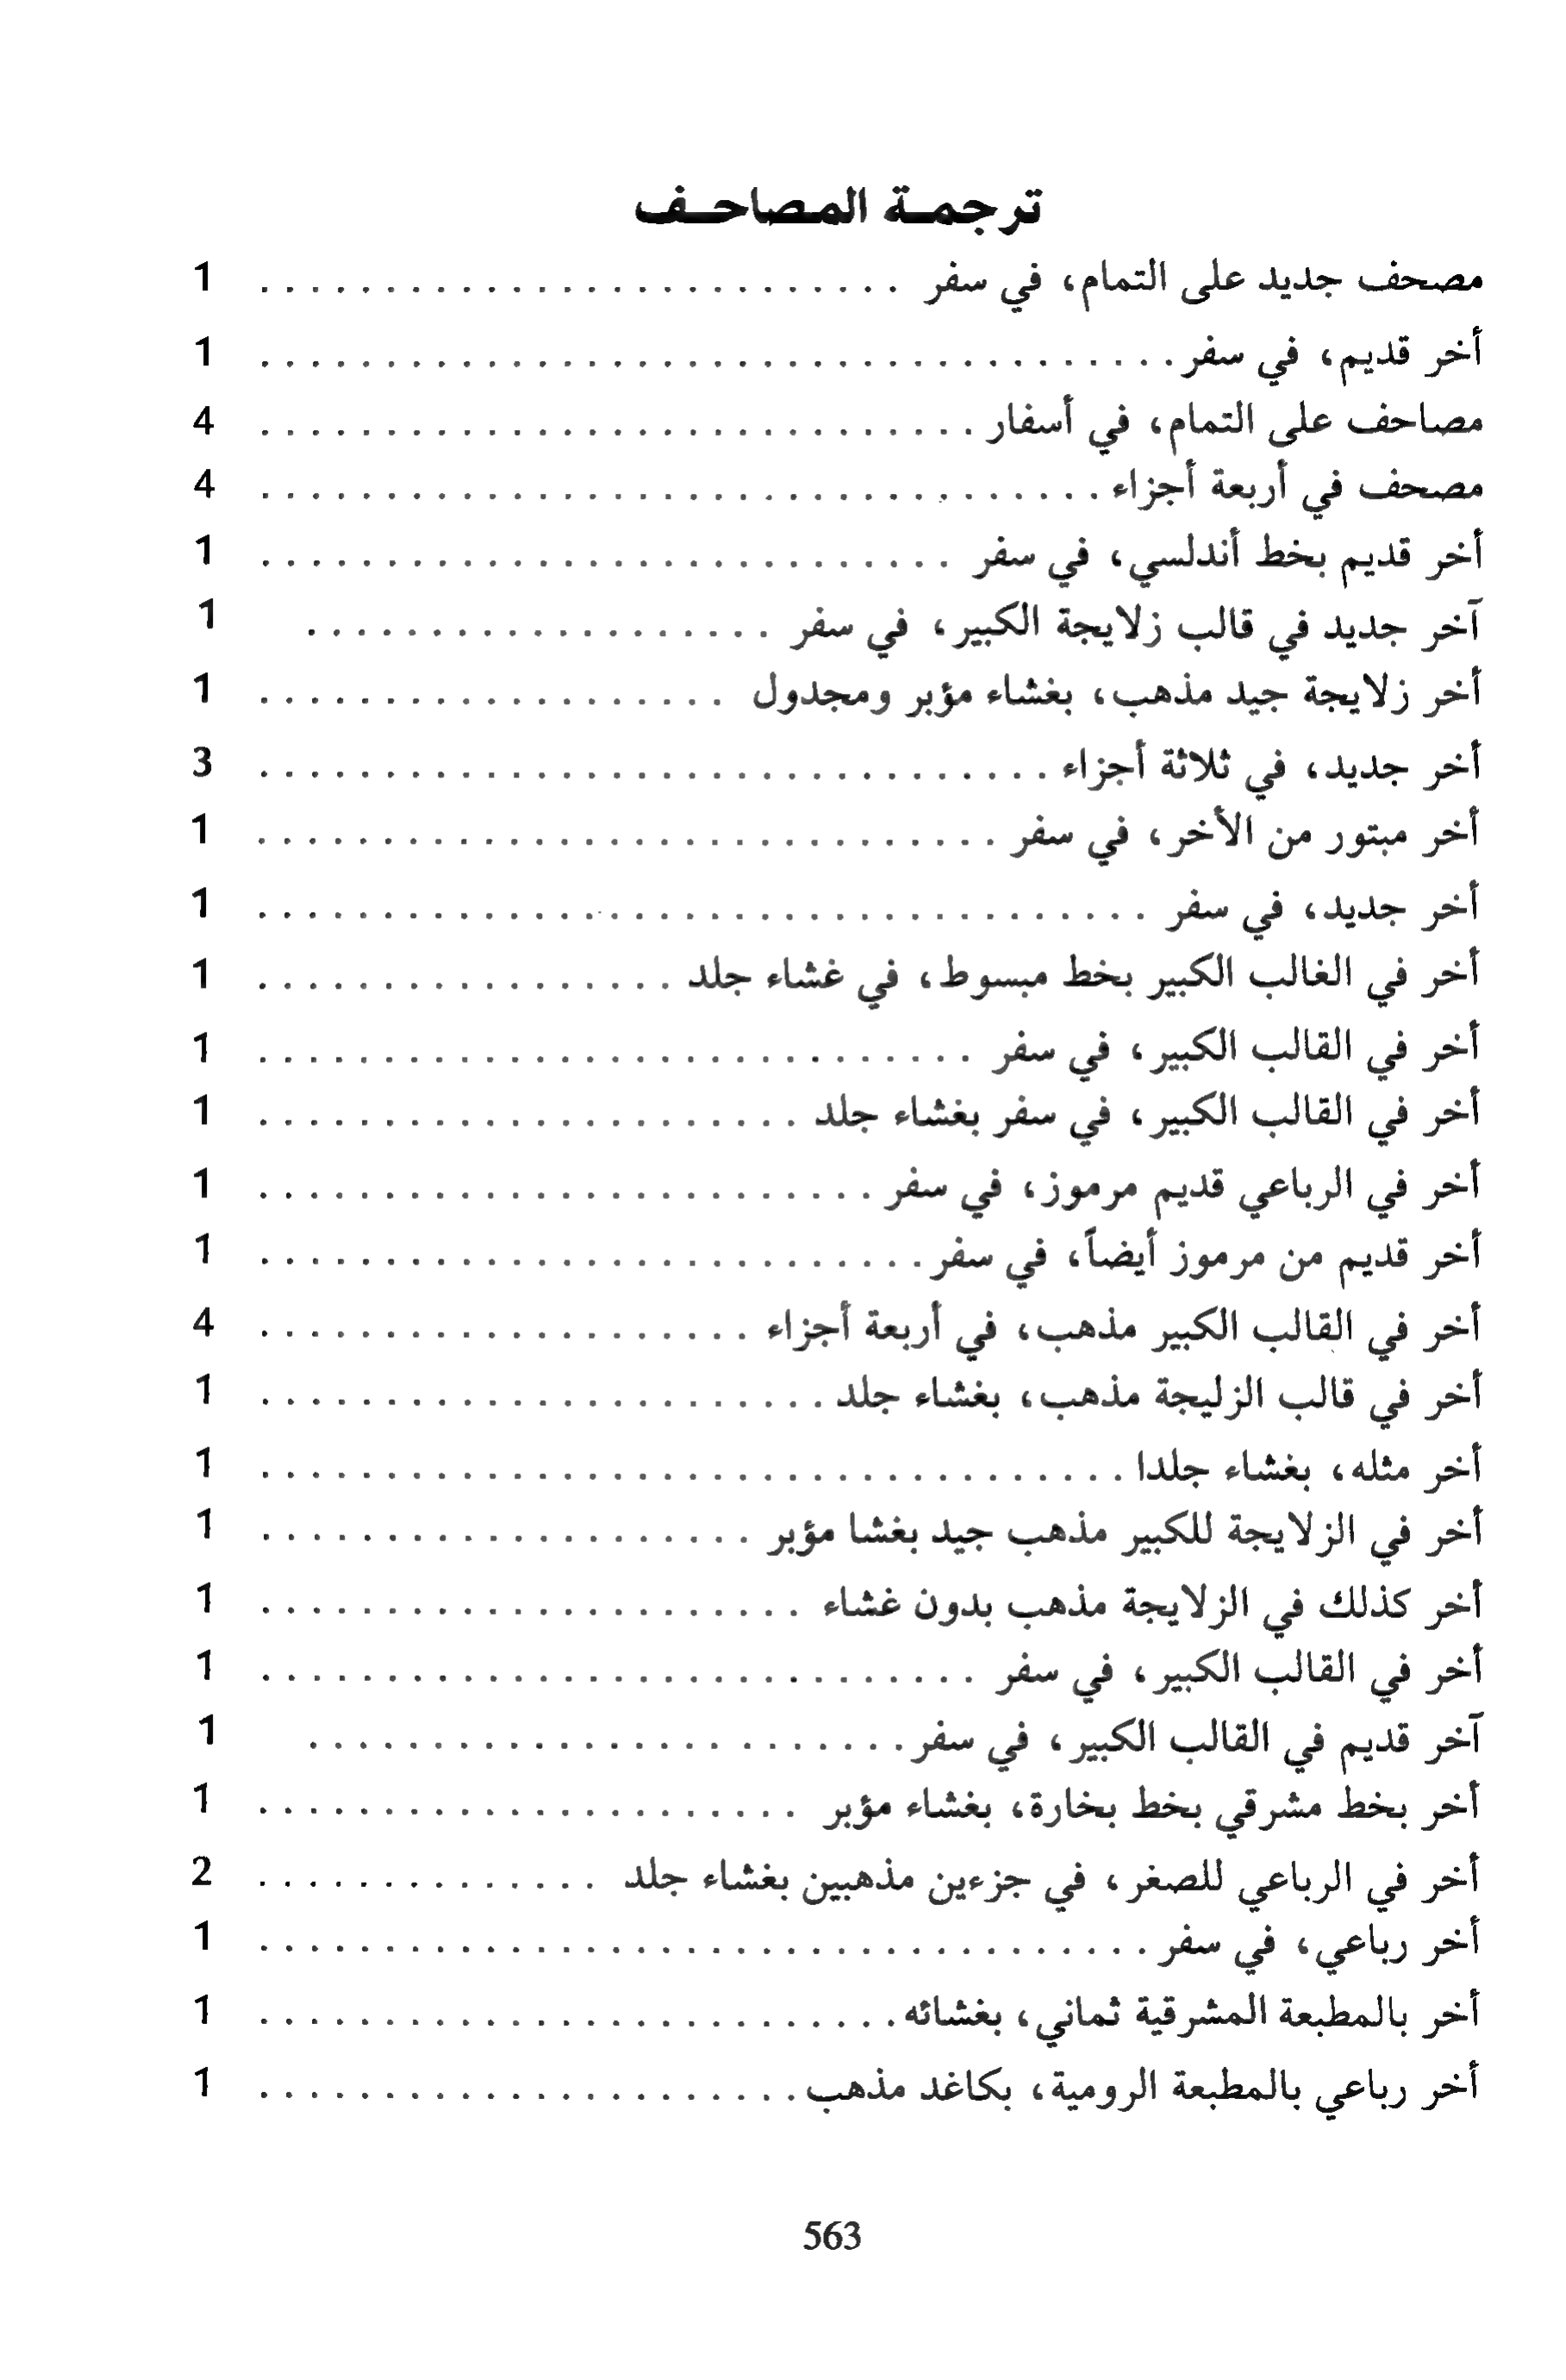 ترجمة المصاحف
مصحف جديد على التمام، في سفر . . . . . . . . . . . . . . . . . . . . . . . . . . 1
أخر قديم، في سفر . . . . . . . . . . . . . . . . . . . . . . . . . . . . . . . . . . . . . 1
مصاحف على التمام، في أسفار . . . . . . . . . . . . . . . . . . . . . . . . . . . . . 4
مصحف في أربعة أجزاء . . . . . . . . . . . . . . . . . . . . . . . . . . . . . . . . . . 4
أخر قديم بخط أندلسي، في سفر . . . . . . . . . . . . . . . . . . . . . . . . . . . . 1
آخر جديد في قالب زلايجة الكبير، في سفر . . . . . . . . . . . . . . . . . . . 1
أخر زلايجة جيد مذهب، بغشاء مؤبر ومجدول . . . . . . . . . . . . . . . . . . . 1
أخر جديد، في ثلاثة أجزاء . . . . . . . . . . . . . . . . . . . . . . . . . . . . . . . . 3
أخر مبتور من الأخر، في سفر . . . . . . . . . . . . . . . . . . . . . . . . . . . . . . 1
أخر جديد، في سفر . . . . . . . . . . . . . . . . . . . . . . . . . . . . . . . . . . . . 1
أخر في الغالب الكبير بخط مبسوط، في غشاء جلد . . . . . . . . . . . . . . . . . 1
أخر في القالب الكبير، في سفر . . . . . . . . . . . . . . . . . . . . . . . . . . . . . 1
أخر في القالب الكبير، في سفر بغشاء جلد . . . . . . . . . . . . . . . . . . . . . . 1
أخر في الرباعي قديم مرموز، في سفر . . . . . . . . . . . . . . . . . . . . . . . . . 1
أخر قديم من مرموز أيضاً، في سفر . . . . . . . . . . . . . . . . . . . . . . . . . . . 1
أخر في القالب الكبير مذهب، في أربعة أجزاء . . . . . . . . . . . . . . . . . . . . 4
أخر في قالب الزليجة مذهب، بغشاء جلد . . . . . . . . . . . . . . . . . . . . . . . 1
أخر مثله، بغشاء جلدا . . . . . . . . . . . . . . . . . . . . . . . . . . . . . . . . . . . 1
أخر في الزلايجة للكبير مذهب جيد بغشا مؤبر . . . . . . . . . . . . . . . . . . . . 1
أخر كذلك في الزلايجة مذهب بدون غشاء . . . . . . . . . . . . . . . . . . . . . . 1
أخر في القالب الكبير، في سفر . . . . . . . . . . . . . . . . . . . . . . . . . . . . . 1
آخر قديم في القالب الكبير، في سفر . . . . . . . . . . . . . . . . . . . . . . . . 1
أخر بخط مشرقي بخط بخارة، بغشاء مؤبر . . . . . . . . . . . . . . . . . . . . . . 1
أخر في الرباعي للصغر، في جزءين مذهبين بغشاء جلد . . . . . . . . . . . . . . 2
أخر رباعي، في سفر . . . . . . . . . . . . . . . . . . . . . . . . . . . . . . . . . . . . 1
أخر بالمطبعة المشرقية ثماني، بغشائه . . . . . . . . . . . . . . . . . . . . . . . . . . 1
أخر رباعي بالمطبعة الرومية، بكاغد مذهب . . . . . . . . . . . . . . . . . . . . . . 1
563